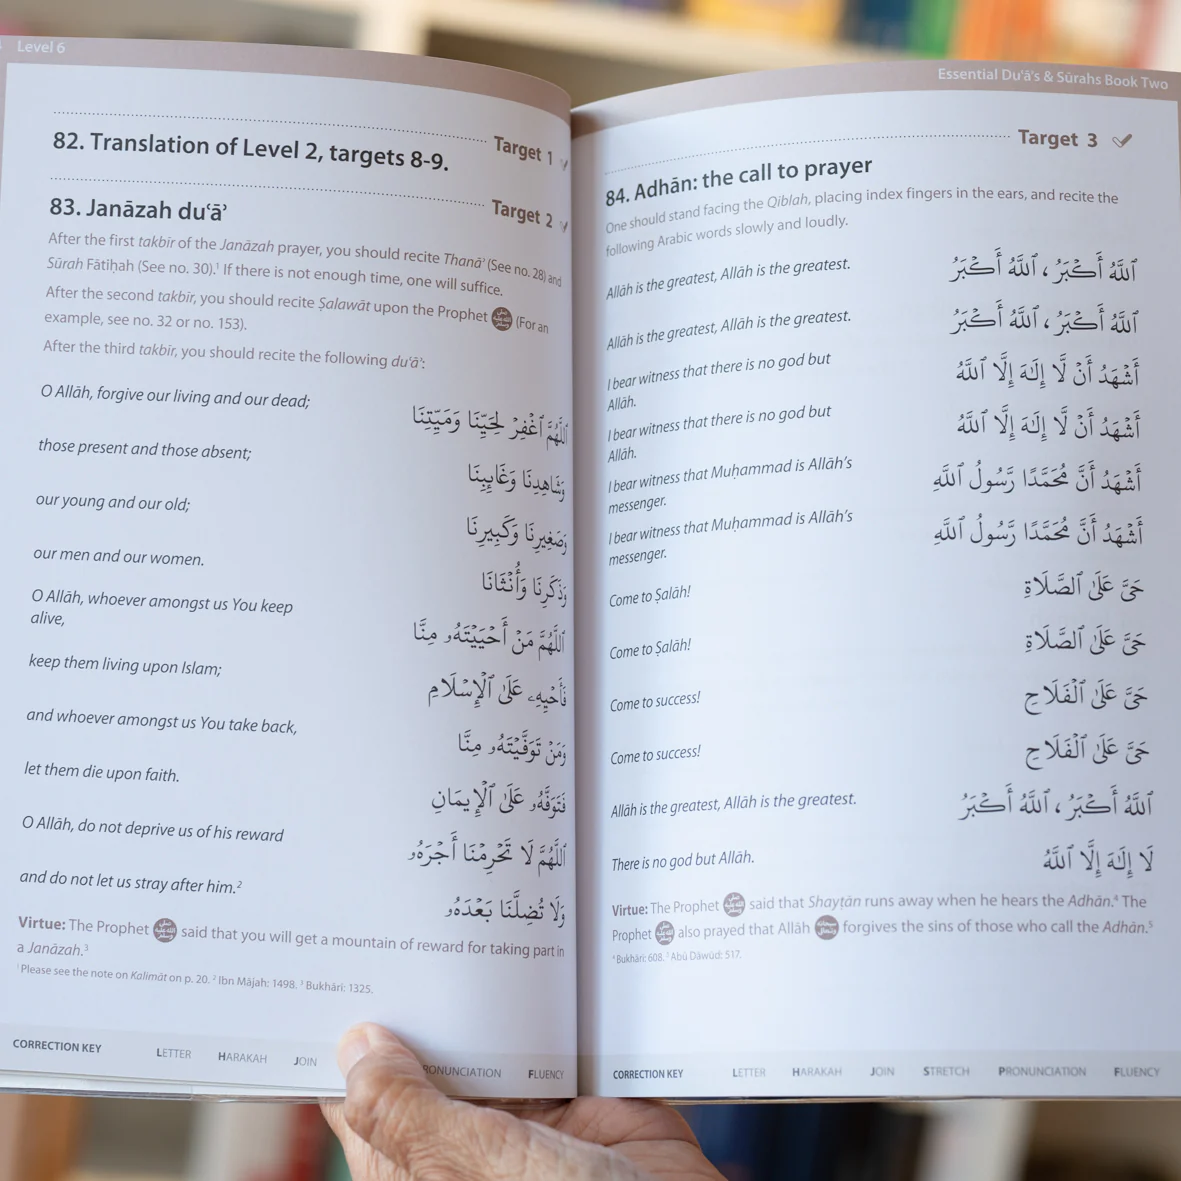 Level 6
82. Translation of Level 2, targets 8-9.
Target 1
83. Janāzah duʿāʾ
Target 2
After the first takbīr of the Janāzah prayer, you should recite Thanāʾ (See no. 28) and
Sūrah Fātiḥah (See no. 30).¹ If there is not enough time, one will suffice.
After the second takbīr, you should recite Ṣalawāt upon the Prophet ﷺ (For an
example, see no. 32 or no. 153).
After the third takbīr, you should recite the following duʿāʾ:
O Allāh, forgive our living and our dead;
اَللّٰهُمَّ ٱغْفِرْ لِحَيِّنَا وَمَيِّتِنَا
those present and those absent;
وَشَاهِدِنَا وَغَائِبِنَا
our young and our old;
وَصَغِيرِنَا وَكَبِيرِنَا
our men and our women.
وَذَكَرِنَا وَأُنْثَانَا
O Allāh, whoever amongst us You keep
alive,
اَللّٰهُمَّ مَنْ أَحْيَيْتَهُۥ مِنَّا
keep them living upon Islam;
فَأَحْيِهِۦ عَلَى ٱلْإِسْلَامِ
and whoever amongst us You take back,
وَمَنْ تَوَفَّيْتَهُۥ مِنَّا
let them die upon faith.
فَتَوَفَّهُۥ عَلَى ٱلْإِيمَانِ
O Allāh, do not deprive us of his reward
اَللّٰهُمَّ لَا تَحْرِمْنَا أَجْرَهُۥ
and do not let us stray after him.²
وَلَا تُضِلَّنَا بَعْدَهُۥ
Virtue: The Prophet ﷺ said that you will get a mountain of reward for taking part in
a Janāzah.³
¹ Please see the note on Kalimāt on p. 20. ² Ibn Mājah: 1498. ³ Bukhāri: 1325.
CORRECTION KEY LETTER HARAKAH JOIN RONUNCIATION FLUENCY
Essential Duʿāʾs & Sūrahs Book Two
Target 3
84. Adhān: the call to prayer
One should stand facing the Qiblah, placing index fingers in the ears, and recite the
following Arabic words slowly and loudly.
Allāh is the greatest, Allāh is the greatest.
اَللّٰهُ أَكْبَرُ، اَللّٰهُ أَكْبَرُ
Allāh is the greatest, Allāh is the greatest.
اَللّٰهُ أَكْبَرُ، اَللّٰهُ أَكْبَرُ
I bear witness that there is no god but
Allāh.
أَشْهَدُ أَنْ لَّا إِلٰهَ إِلَّا ٱللّٰهُ
I bear witness that there is no god but
Allāh.
أَشْهَدُ أَنْ لَّا إِلٰهَ إِلَّا ٱللّٰهُ
I bear witness that Muḥammad is Allāh’s
messenger.
أَشْهَدُ أَنَّ مُحَمَّدًا رَّسُولُ ٱللّٰهِ
I bear witness that Muḥammad is Allāh’s
messenger.
أَشْهَدُ أَنَّ مُحَمَّدًا رَّسُولُ ٱللّٰهِ
Come to Ṣalāh!
حَيَّ عَلَى ٱلصَّلَاةِ
Come to Ṣalāh!
حَيَّ عَلَى ٱلصَّلَاةِ
Come to success!
حَيَّ عَلَى ٱلْفَلَاحِ
Come to success!
حَيَّ عَلَى ٱلْفَلَاحِ
Allāh is the greatest, Allāh is the greatest.
اَللّٰهُ أَكْبَرُ، اَللّٰهُ أَكْبَرُ
There is no god but Allāh.
لَا إِلٰهَ إِلَّا ٱللّٰهُ
Virtue: The Prophet ﷺ said that Shayṭān runs away when he hears the Adhān.⁴ The
Prophet ﷺ also prayed that Allāh forgives the sins of those who call the Adhān.⁵
Bukhāri: 608. Abū Dāwūd: 517.
CORRECTION KEY LETTER HARAKAH JOIN STRETCH PRONUNCIATION FLUENCY